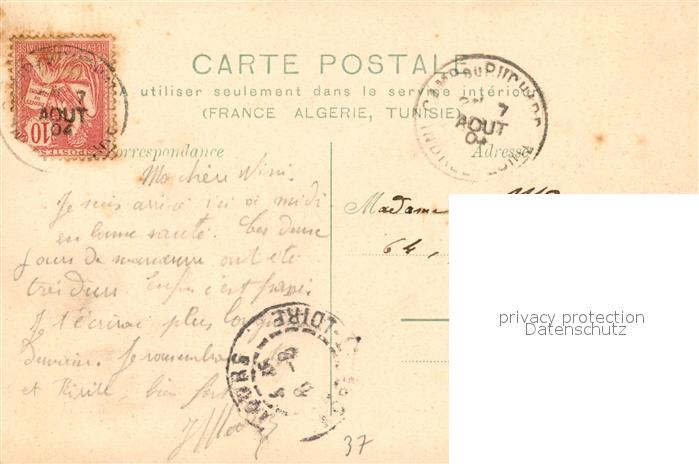 CARTE POSTALE
A utiliser seulement dans le service intérieur
(FRANCE ALGERIE, TUNISIE)
Correspondance
Adresse
10
POSTES
7
AOUT
04
CAMP DU RUCHARD
7
AOUT
04
INDRE
Ma chère Nini.
Je suis arrivé ici à midi
en bonne santé. Ces deux
jours de manœuvre ont été
très durs. Enfin c'est passé.
Je t'écrirai plus long
demain. Je
et bien
Madame
64,
TOURS
LOIRE
37
privacy protection
Datenschutz